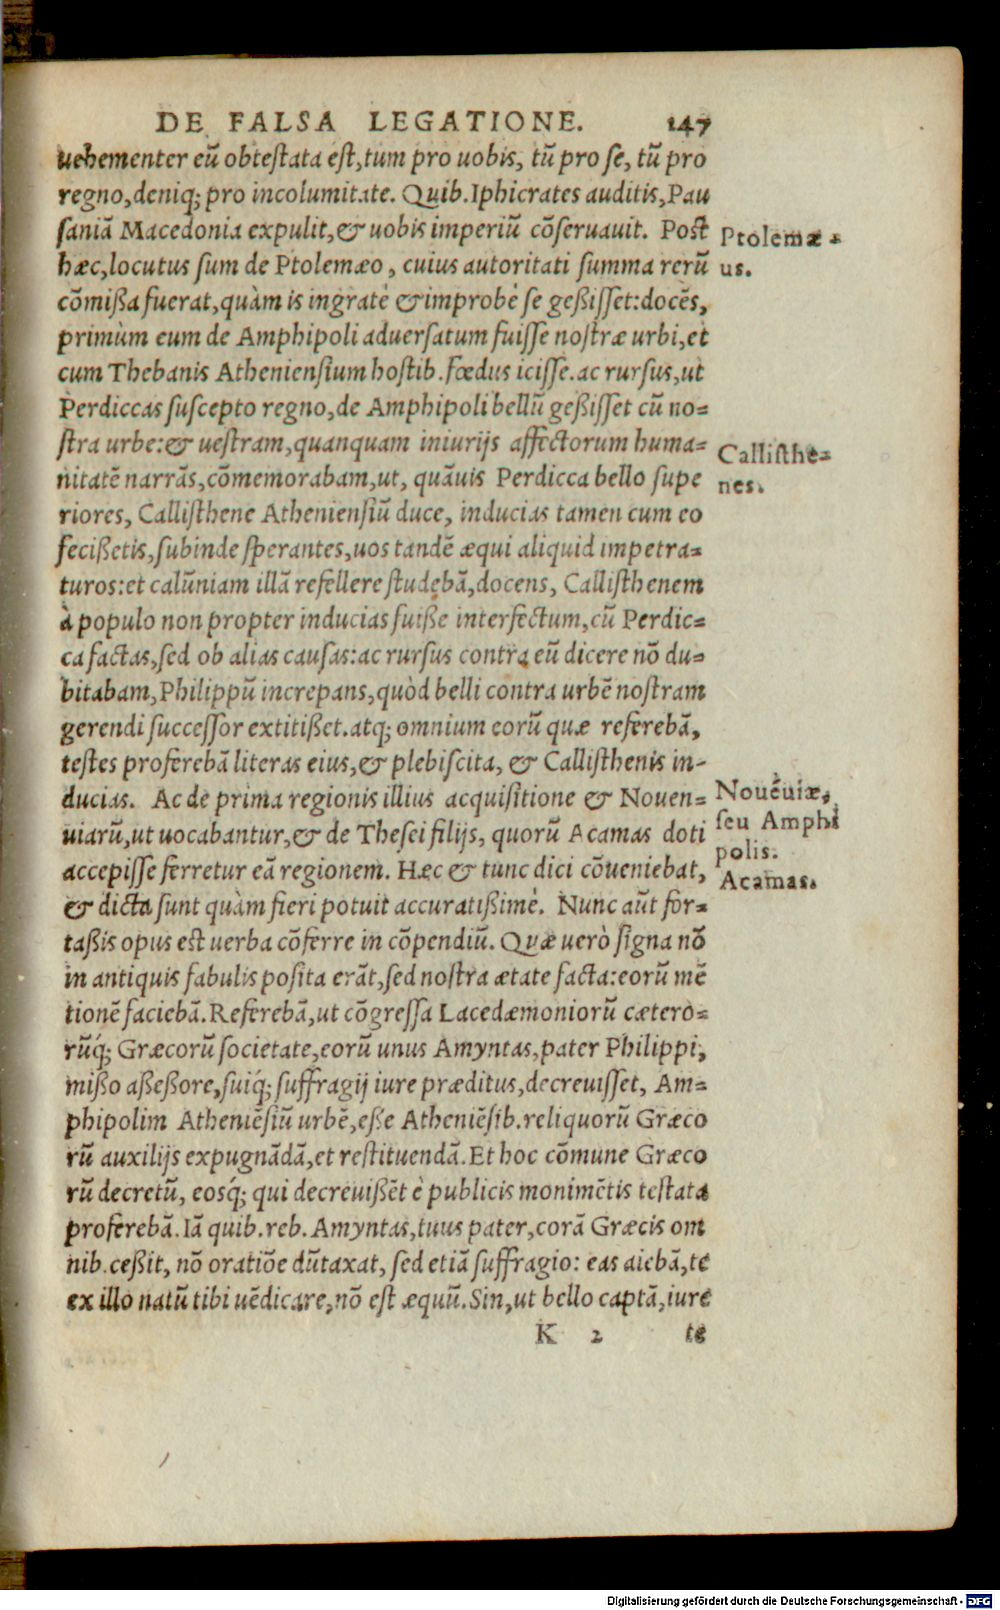 DE FALSA LEGATIONE. 147
uehementer eũ obtestata est, tum pro uobis, tũ pro se, tũ pro
regno, deniq; pro incolumitate. Quib. Iphicrates auditis, Pau
saniã Macedonia expulit, & uobis imperiũ cõseruauit. Post
hæc, locutus sum de Ptolemæo, cuius autoritati summa rerũ
cõmissa fuerat, quàm is ingratè & improbè se gessisset: docẽs,
primùm eum de Amphipoli aduersatum fuisse nostræ urbi, et
cum Thebanis Atheniensium hostib. fœdus icisse. ac rursus, ut
Perdiccas suscepto regno, de Amphipoli bellũ gessisset cũ no=
stra urbe: & uestram, quanquam iniurijs affectorum huma=
nitatẽ narrãs, cõmemorabam, ut, quãuis Perdicca bello supe
riores, Callisthene Atheniensiũ duce, inducias tamen cum eo
fecissetis, subinde sperantes, uos tandẽ æqui aliquid impetra=
turos: et calũniam illã refellere studebã, docens, Callisthenem
à populo non propter inducias fuisse interfectum, cũ Perdic=
ca factas, sed ob alias causas: ac rursus contra eũ dicere nõ du=
bitabam, Philippũ increpans, quòd belli contra urbẽ nostram
gerendi successor extitisset. atq; omnium eorũ quæ referebã,
testes proferebã literas eius, & plebiscita, & Callisthenis in-
ducias. Ac de prima regionis illius acquisitione & Nouen=
uiarũ, ut uocabantur, & de Thesei filijs, quorũ Acamas doti
accepisse ferretur eã regionem. Hæc & tunc dici cõueniebat,
& dicta sunt quàm fieri potuit accuratissimè. Nunc aũt for=
tassis opus est uerba cõferre in cõpendiũ. Quæ uerò signa nõ
in antiquis fabulis posita erãt, sed nostra ætate facta: eorũ mẽ
tionẽ faciebã. Referebã, ut cõgressa Lacedæmoniorũ cætero=
rũq́; Græcorũ societate, eorũ unus Amyntas, pater Philippi,
misso assessore, suiq́; suffragij iure præditus, decreuisset, Am=
phipolim Atheniẽsiũ urbẽ, esse Atheniẽsib. reliquorũ Græco
rũ auxilijs expugnãdã, et restituendã. Et hoc cõmune Græco
rũ decretũ, eosq́; qui decreuissẽt è publicis monimẽtis testata
proferebã. Iã quib. reb. Amyntas, tuus pater, corã Græcis om
nib. cessit, nõ oratiõe dũtaxat, sed etiã suffragio: eas aiebã, te
ex illo natũ tibi uẽdicare, nõ est æquũ. Sin, ut bello captã, iure
K 2 te
Ptolemæ=
us.
Callisthe=
nes.
Nouẽuiæ,
seu Amphi
polis.
Acamas.
Digitalisierung gefördert durch die Deutsche Forschungsgemeinschaft - DFG